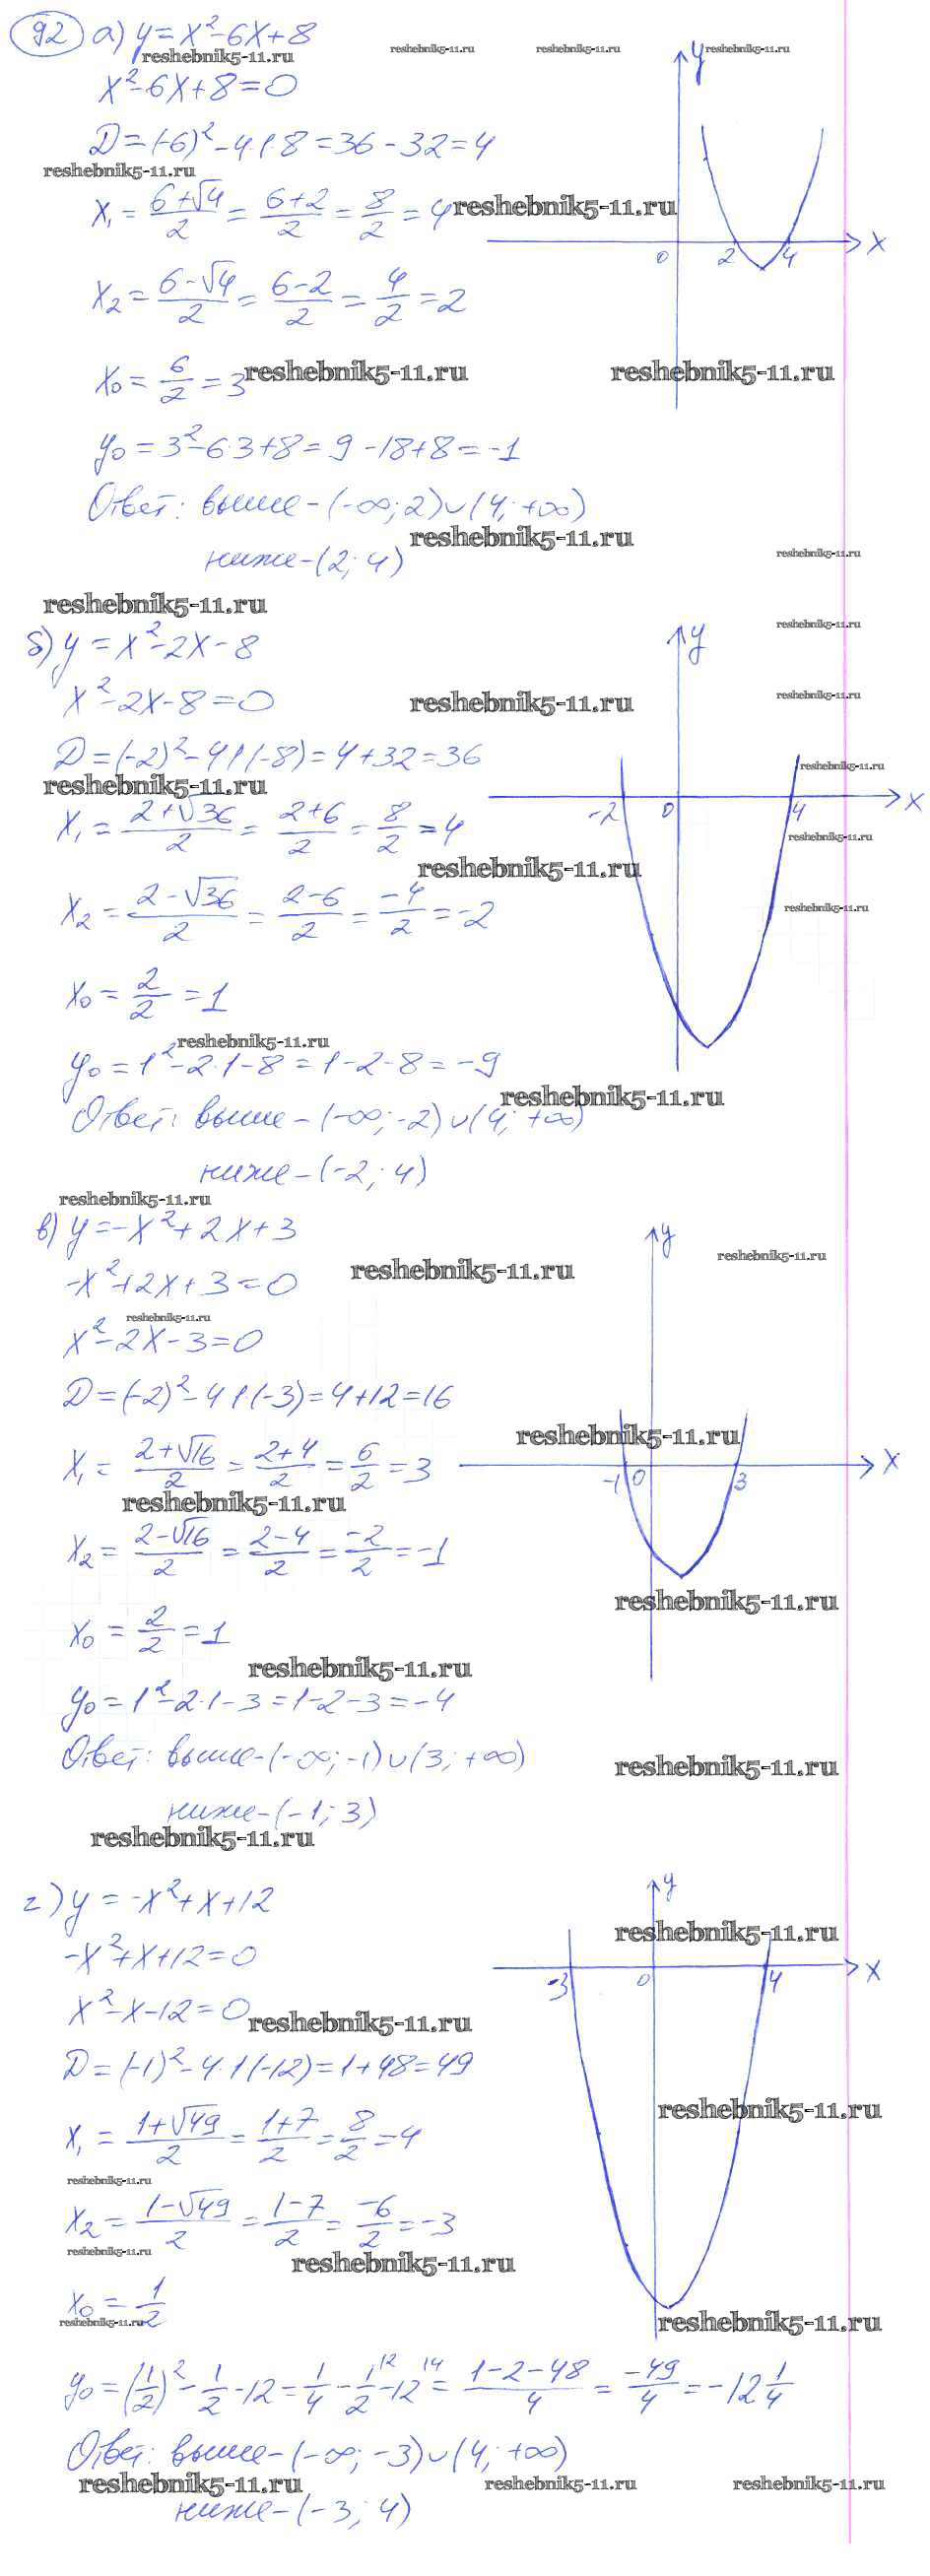 92 а) y = x² - 6x + 8
reshebnik5-11.ru reshebnik5-11.ru reshebnik5-11.ru reshebnik5-11.ru
y
x² - 6x + 8 = 0
D = (-6)² - 4·1·8 = 36 - 32 = 4
reshebnik5-11.ru
x₁ = (6+√4)/2 = (6+2)/2 = 8/2 = 4
reshebnik5-11.ru
0 2 4 x
x₂ = (6-√4)/2 = (6-2)/2 = 4/2 = 2
x₀ = 6/2 = 3
reshebnik5-11.ru reshebnik5-11.ru
y₀ = 3² - 6·3 + 8 = 9 - 18 + 8 = -1
Ответ: выше - (-∞; 2) ∪ (4; +∞)
reshebnik5-11.ru reshebnik5-11.ru
ниже - (2; 4)
reshebnik5-11.ru reshebnik5-11.ru
б) y = x² - 2x - 8
y
x² - 2x - 8 = 0
reshebnik5-11.ru reshebnik5-11.ru
D = (-2)² - 4·1·(-8) = 4 + 32 = 36
reshebnik5-11.ru reshebnik5-11.ru
-2 0 4 x
x₁ = (2+√36)/2 = (2+6)/2 = 8/2 = 4
reshebnik5-11.ru
reshebnik5-11.ru
x₂ = (2-√36)/2 = (2-6)/2 = -4/2 = -2
reshebnik5-11.ru
x₀ = 2/2 = 1
reshebnik5-11.ru
y₀ = 1² - 2·1 - 8 = 1 - 2 - 8 = -9
reshebnik5-11.ru
Ответ: выше - (-∞; -2) ∪ (4; +∞)
ниже - (-2; 4)
reshebnik5-11.ru
в) y = -x² + 2x + 3
y
reshebnik5-11.ru
-x² + 2x + 3 = 0
reshebnik5-11.ru
reshebnik5-11.ru
x² - 2x - 3 = 0
D = (-2)² - 4·1·(-3) = 4 + 12 = 16
reshebnik5-11.ru
x₁ = (2+√16)/2 = (2+4)/2 = 6/2 = 3
-1 0 3 x
reshebnik5-11.ru
x₂ = (2-√16)/2 = (2-4)/2 = -2/2 = -1
reshebnik5-11.ru
x₀ = 2/2 = 1
reshebnik5-11.ru
y₀ = 1² - 2·1 - 3 = 1 - 2 - 3 = -4
Ответ: выше - (-∞; -1) ∪ (3; +∞)
reshebnik5-11.ru
ниже - (-1; 3)
reshebnik5-11.ru
г) y = -x² + x + 12
y
reshebnik5-11.ru
-x² + x + 12 = 0
-3 0 4 x
x² - x - 12 = 0
reshebnik5-11.ru
D = (-1)² - 4·1·(-12) = 1 + 48 = 49
reshebnik5-11.ru
x₁ = (1+√49)/2 = (1+7)/2 = 8/2 = 4
reshebnik5-11.ru
x₂ = (1-√49)/2 = (1-7)/2 = -6/2 = -3
reshebnik5-11.ru
reshebnik5-11.ru
x₀ = 1/2
reshebnik5-11.ru reshebnik5-11.ru
y₀ = (1/2)² - 1/2 - 12 = 1/4 - 1/2 \2 - 12 \4 = (1-2-48)/4 = -49/4 = -12 1/4
Ответ: выше - (-∞; -3) ∪ (4; +∞)
reshebnik5-11.ru reshebnik5-11.ru reshebnik5-11.ru
ниже - (-3; 4)